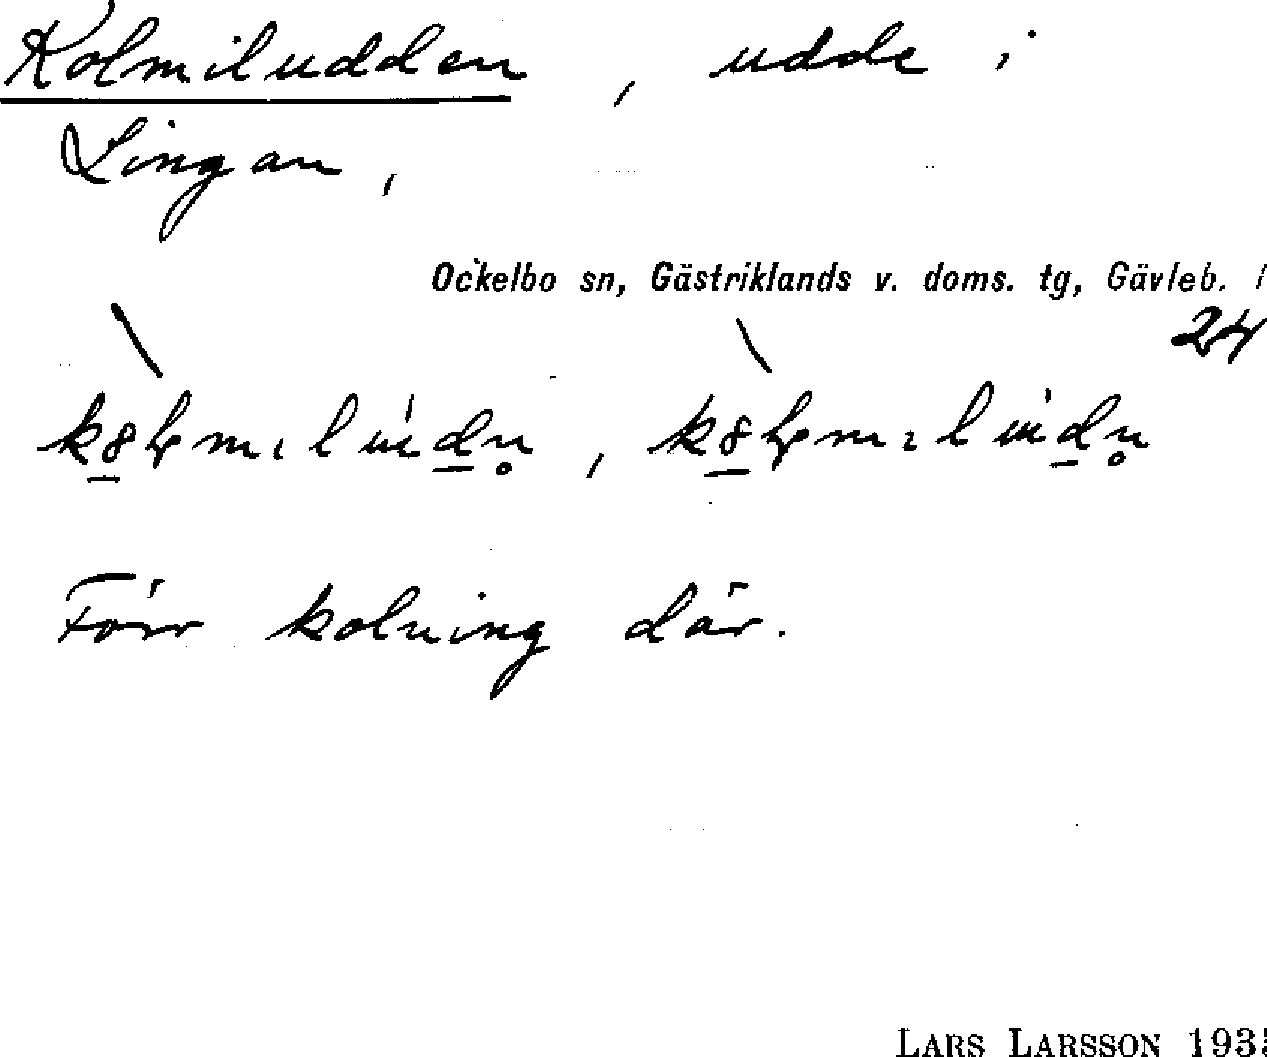 Kolmiludden, udde i
Lingan,
Ockelbo sn, Gästriklands v. doms. tg, Gävleb.
24
Förr kolning där.
LARS LARSSON 193